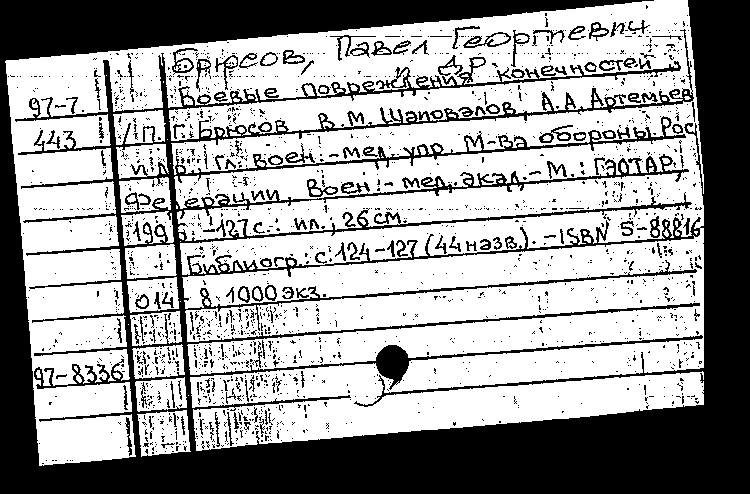 Брюсов, Павел Георгиевич
и др.
97-7 Боевые повреждения конечностей
443 / П.Г. Брюсов, В.М. Шаповалов, А.А. Артемьев
и др., Гл. воен.-мед. упр. М-ва обороны Рос.
Федерации, Воен.-мед. акад. - М.: ГЭОТАР,
1996. -127с.: ил.; 26см.
Библиогр.: с.124-127 (44назв.). -ISBN 5-88816-
014-8; 1000экз.
97-8336